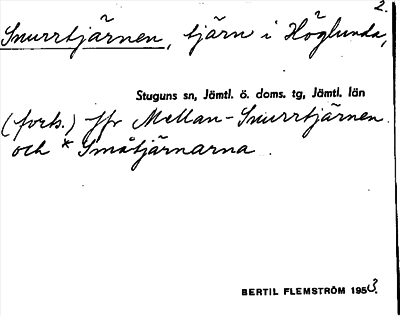 2.
Snurrtjärnen, tjärn i Höglunda,
Stuguns sn, Jämtl. ö. doms. tg, Jämtl. län
(forts.) Jfr Mellan-Snurrtjärnen
och *Småtjärnarna.
BERTIL FLEMSTRÖM 1953.